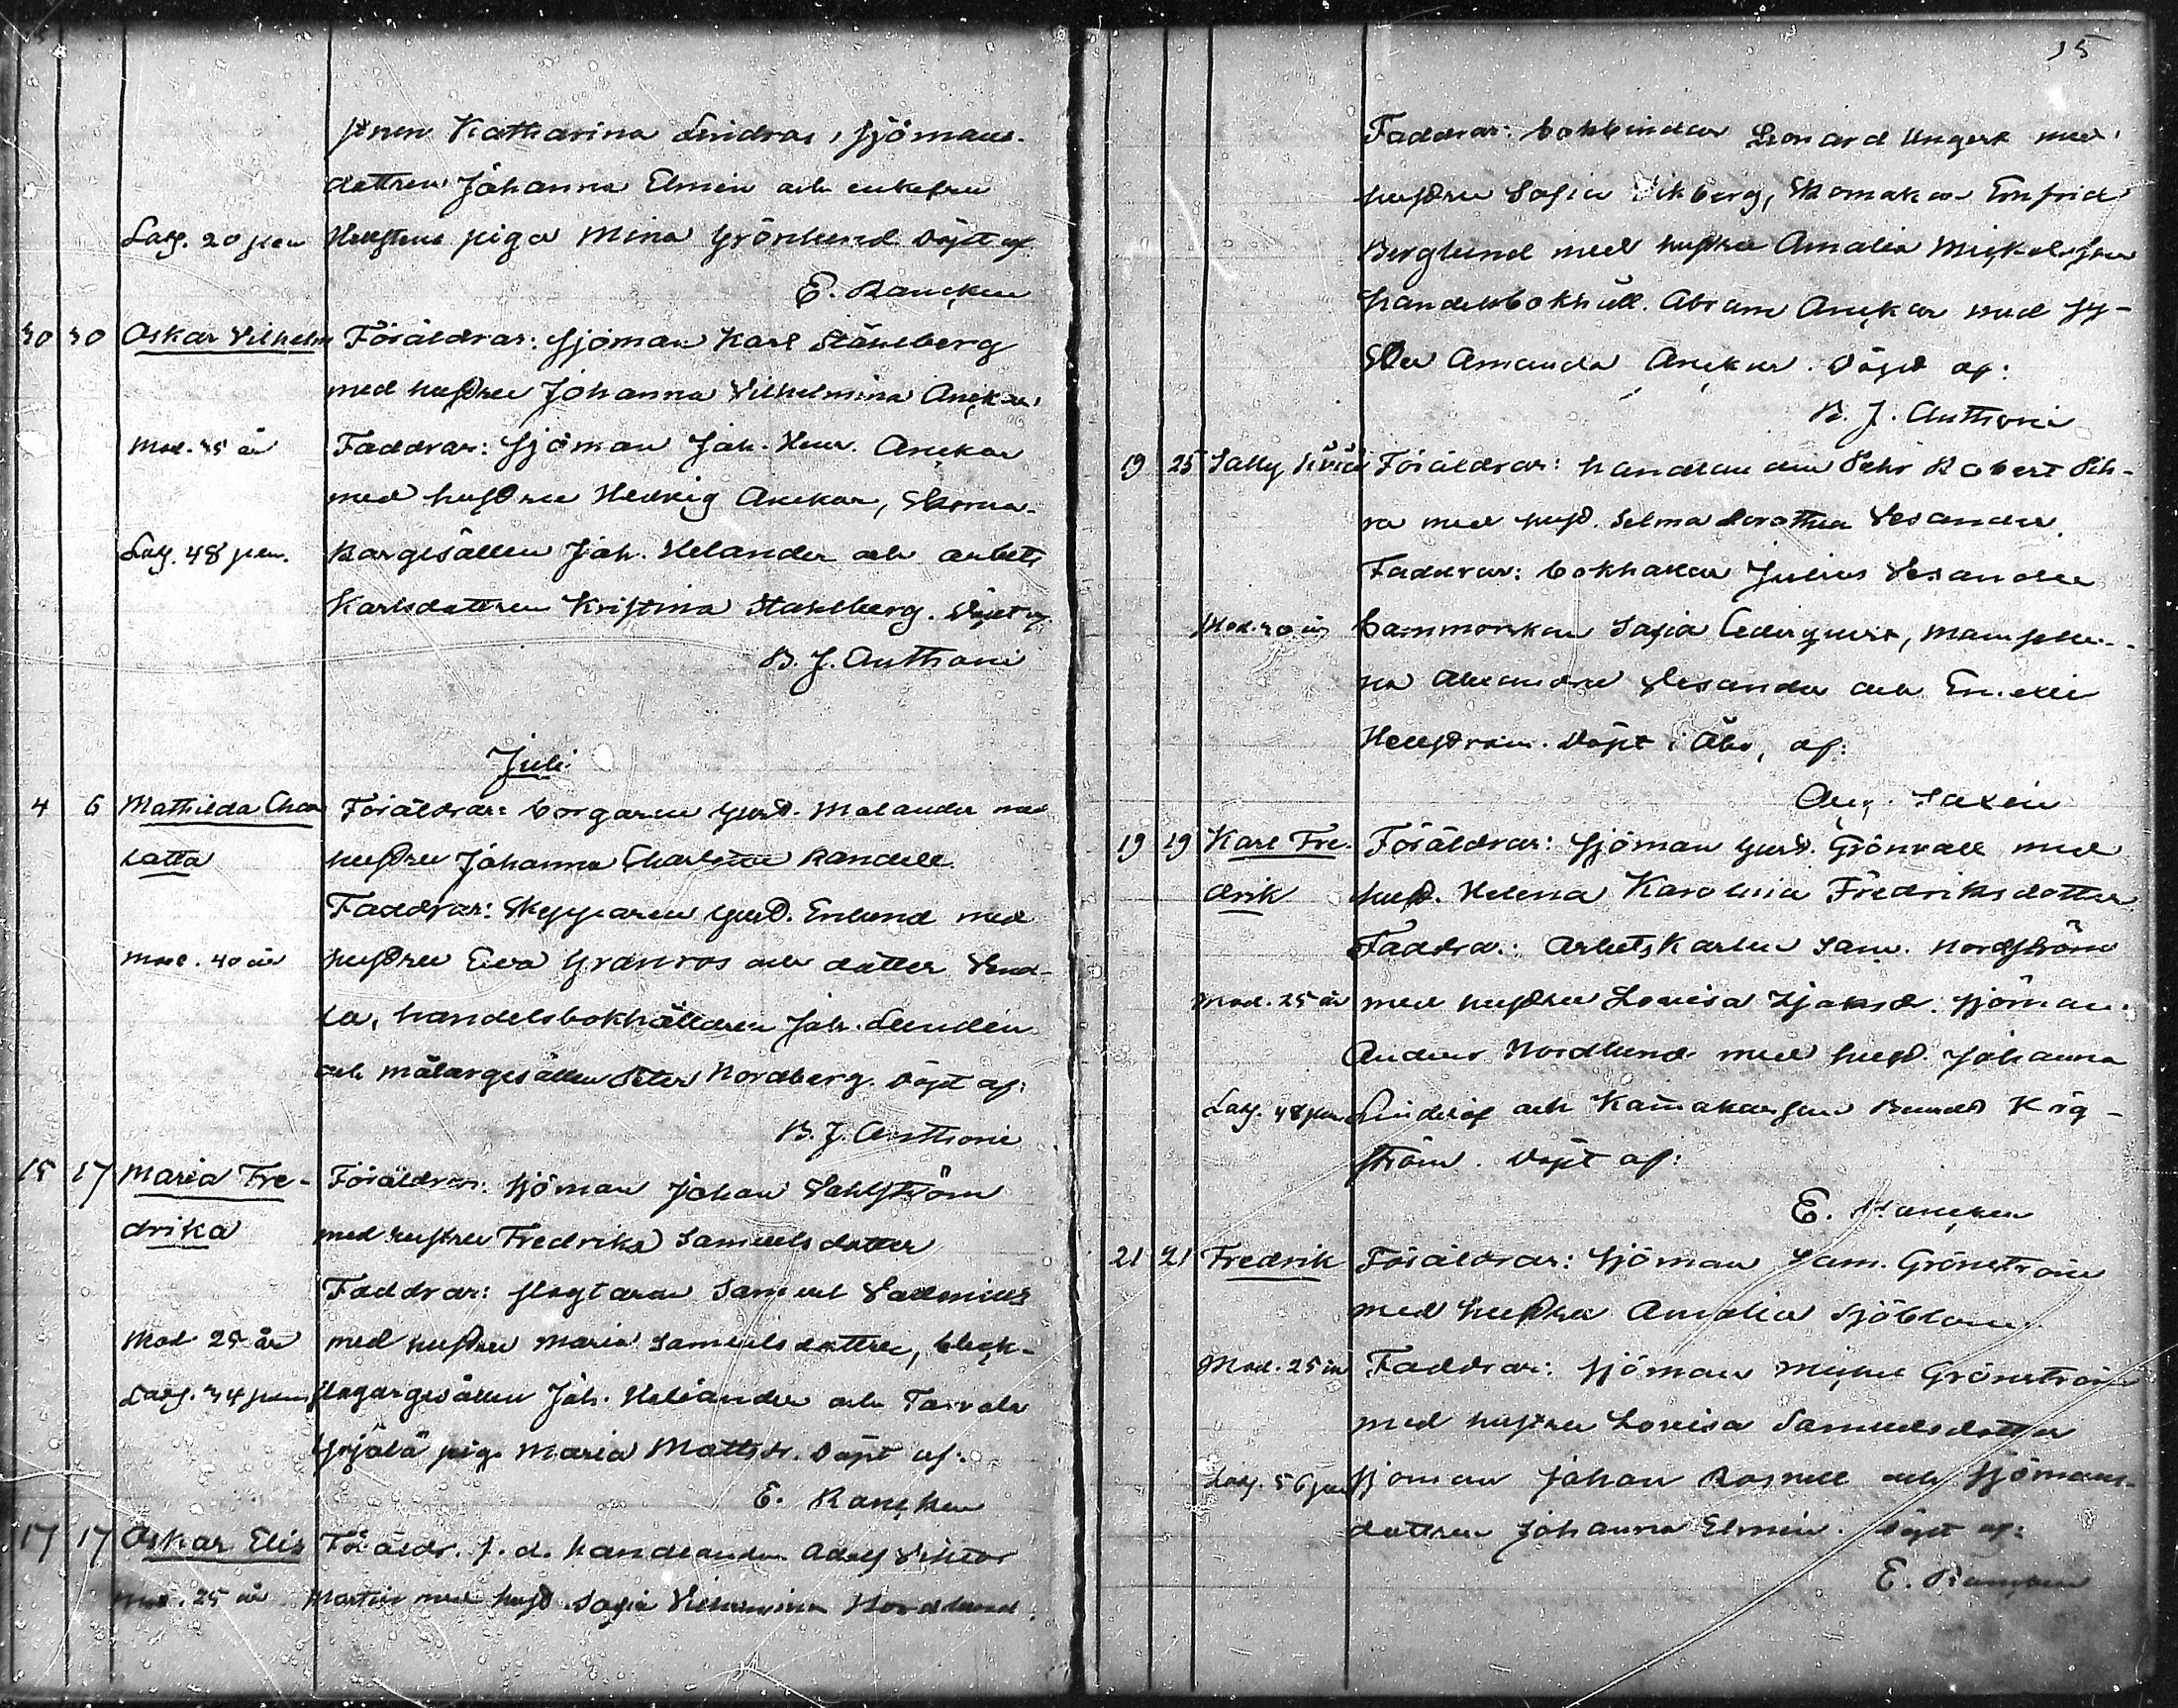 15
Katharina Lindros, sjömans-
dottren Johanna Elmén och enkefru
Lösg. 20 pen Hellstens piga Mina Grönlund. Döpt af
E. Rancken
30 30 Oskar Vilhelm Föräldrar: sjöman Karl Ståhlberg
med hustru Johanna Vilhelmina Anckar.
Mod. 35 år Faddrar: Sjöman Joh. Henr. Anckar
med hustru Hedvig Anckar, skoma-
Lösg. 48 pen. kargesällen Joh. Helander och arbets
karlsdottren Kristina Stahlberg. Döpt af
B. J. Anthoni
Juli
4 6 Mathilda Char Föräldrar: borgaren Gust. Malander med
lotta hustru Johanna Charlotta Randell.
Faddrar: Skepparen Gust. Enlund med
Mod. 40 år hustru Eva Granroos och dotter Vend-
la, handelsbokhållaren Joh. Lundén
och målargesällen Peter Nordberg. Döpt af:
B. J. Anthoni
15 17 Maria Fre- Föräldrar: sjöman Johan Vahlström
drika med hustru Fredrika Samuelsdotter
Faddrar: slagtaren Samuel Salenius
Mod 28 år med hustru Maria Samuelsdotter, bleck-
Lösg. 34 pen slagargesällen Joh. Helander och
piga Maria Mattsdr. Döpt af:
E. Rancken
17 17 Oskar Elis Föräldr. f. d. handlanden Adolf Viktor
Mod. 25 år Martin med hust. Sofia Vilhelmina Nordlund.
Faddrar: bokbindare Leonard Ungert med
hustru Sofia Vikberg, Skomakar Enfrid
Berglund med hustru Amalia Mickelsson
handelsbokhåll. Abram Anckar med sy-
ster Amanda Anckar. Döpt af:
B. J. Anthoni
19 25 Sally Föräldrar: handlanden Pehr Robert Pih-
ra med hust. Selma Dorothea Vesander.
Faddrar: bokhållar Julius Vesander
Mod. 20 år barnmorskan Sofia Cederqvist, mamsell-
na Alexandra Vesander och Emelie
Hellström. Döpt i Åbo, af:
Aug. Saxén
19 19 Karl Fre- Föräldrar: sjöman Gust. Grönvall med
drik hust. Helena Karolina Fredriksdotter
Faddra.: Arbetskarlen Sam. Nordström
Mod. 25 år med hustru Lovisa Isaksd. sjöman
Anders Nordlund med hust. Johanna
Lösg. 48 pen Lindelöf och
ström. Döpt af:
E. Rancken
21 21 Fredrik Föräldrar: Sjöman Sam. Grönström
med hustru Amalia Sjöblom.
Mod. 25 år Faddrar: sjöman Michel Grönström
med hustru Lovisa Samuelsdotter
Lösg. 56 pen sjöman Johan Rosnell och sjömans-
dottren Johanna Elmén. Döpt af:
E. Rancken